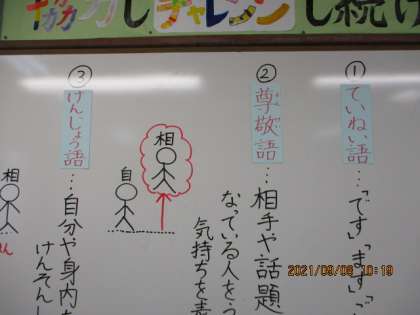 協力し チャレンジし続け
① ていねい語…「です」「ます」「ご
② 尊敬語…相手や話題
なっている人をう
気持ちを表
相
自
③ けんじょう語…自分や身内を
けんそんし
相
2021/09/09 10:19